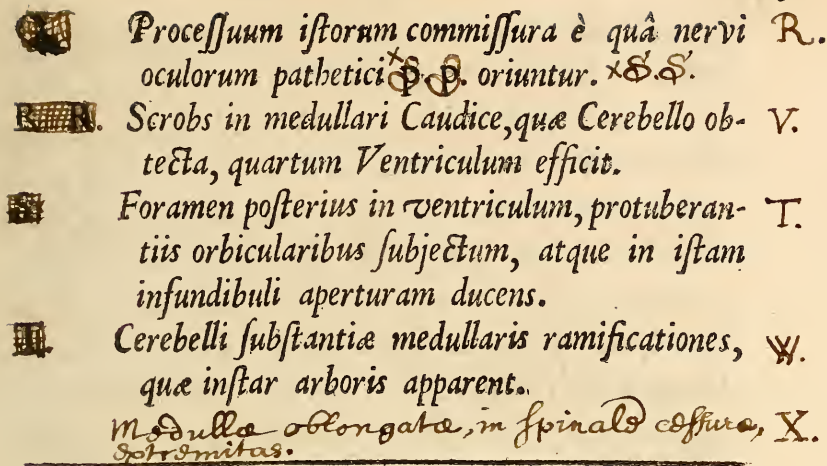 Q. Processuum istorum commissura è quâ nervi R.
oculorum pathetici × p. p. oriuntur. ×S.S.
R. R. Scrobs in medullari Caudice, quæ Cerebello ob- V.
tecta, quartum Ventriculum efficit.
S. Foramen posterius in ventriculum, protuberan- T.
tiis orbicularibus subjectum, atque in istam
infundibuli aperturam ducens.
T. Cerebelli substantiæ medullaris ramificationes, W.
quæ instar arboris apparent.
Medullæ oblongatæ, in spinale cessuræ, X.
extremitas.